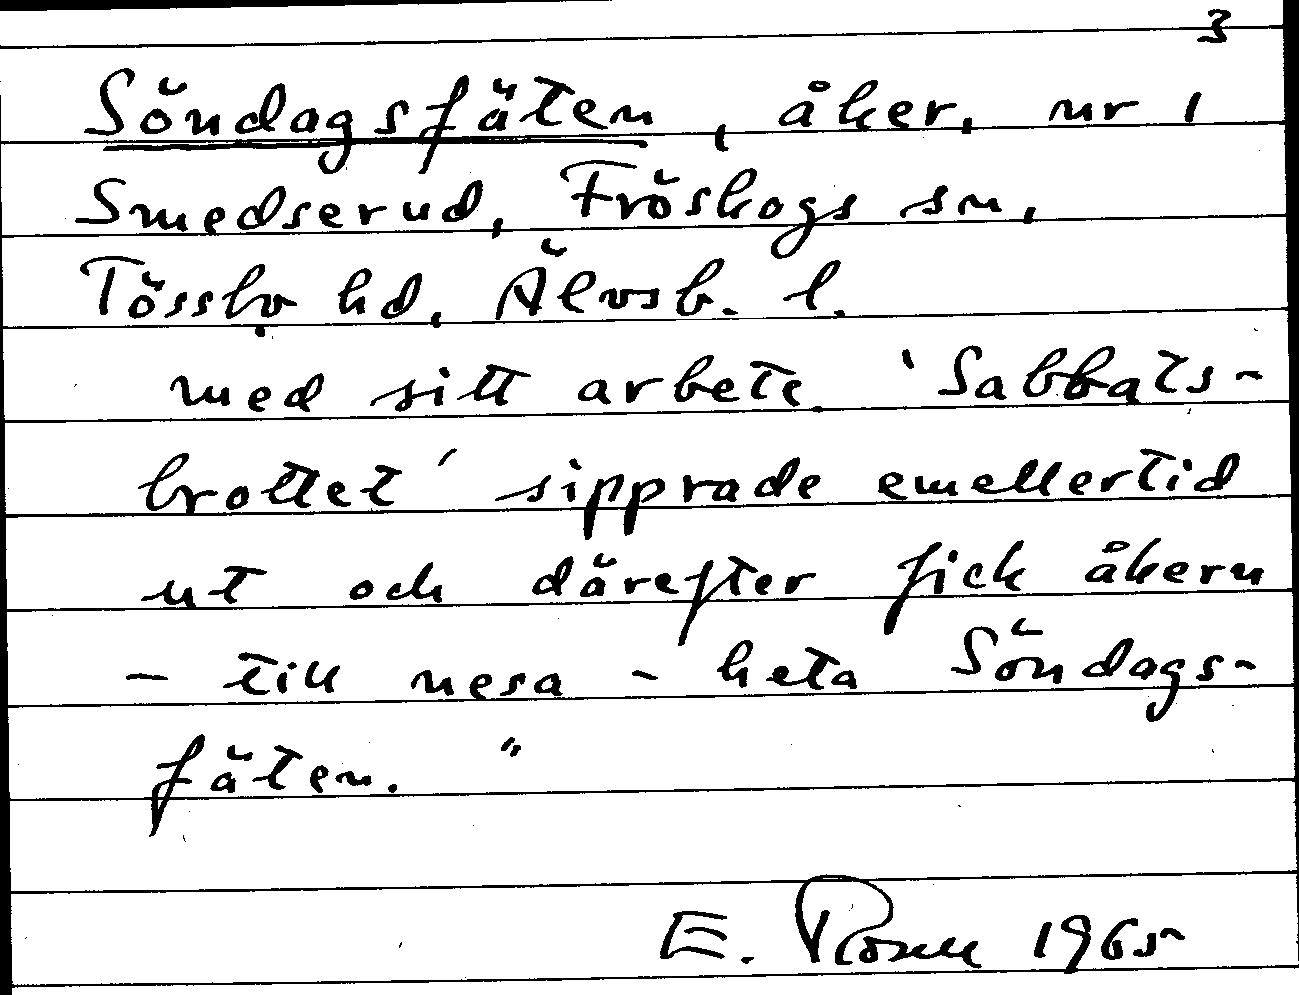 3
Söndagsfäten, åker, nr 1
Smedserud, Fröskogs sn,
Tössbo hd, Älvsb. l.
med sitt arbete. 'Sabbats-
brottet' sipprade emellertid
ut och därefter fick åkern
- till nesa - heta Söndags-
fäten."
E. 1965